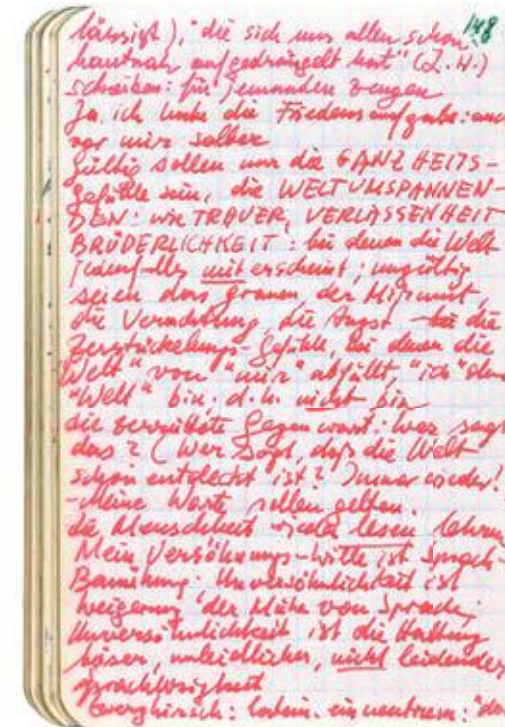 148
lässigt), "die sich uns allen schon
hautnah aufgedrängelt hat" (L.W.)
schreiben: für jemanden zeugen
Ja, ich habe die Friedensaufgabe: auch
vor mir selber
Gültig sollen nur die GANZHEITS-
gefühle sein, die WELTUMSPANNEN-
DEN: wie TRAUER, VERLASSENHEIT
BRÜDERLICHKEIT: bei denen die Welt
jedenfalls mit erscheint; ungültig
seien das Grauen, der Mißmut,
die Verachtung, die Angst - die
Zerstückelungs-Gefühle, bei denen die
"Welt" von "mir" abfällt, "ich" ohne
"Welt" bin, d.h. nicht bin
die zerrüttete Gegenwart: wer sagt
das? (Wer sagt, daß die Welt
schon entdeckt ist? Immer wieder!
- Meine Worte sollen gelten.
die Menschheit wieder lesen lehren
Mein Versöhnungs-Wille ist Sprach-
Bemühung. Unversöhnlichkeit ist
Weigerung der Mühe von Sprache;
Unversöhnlichkeit ist die Haltung
böser, unleidlicher, nicht leidender
Sprachlosigkeit
ein neutrum: "das